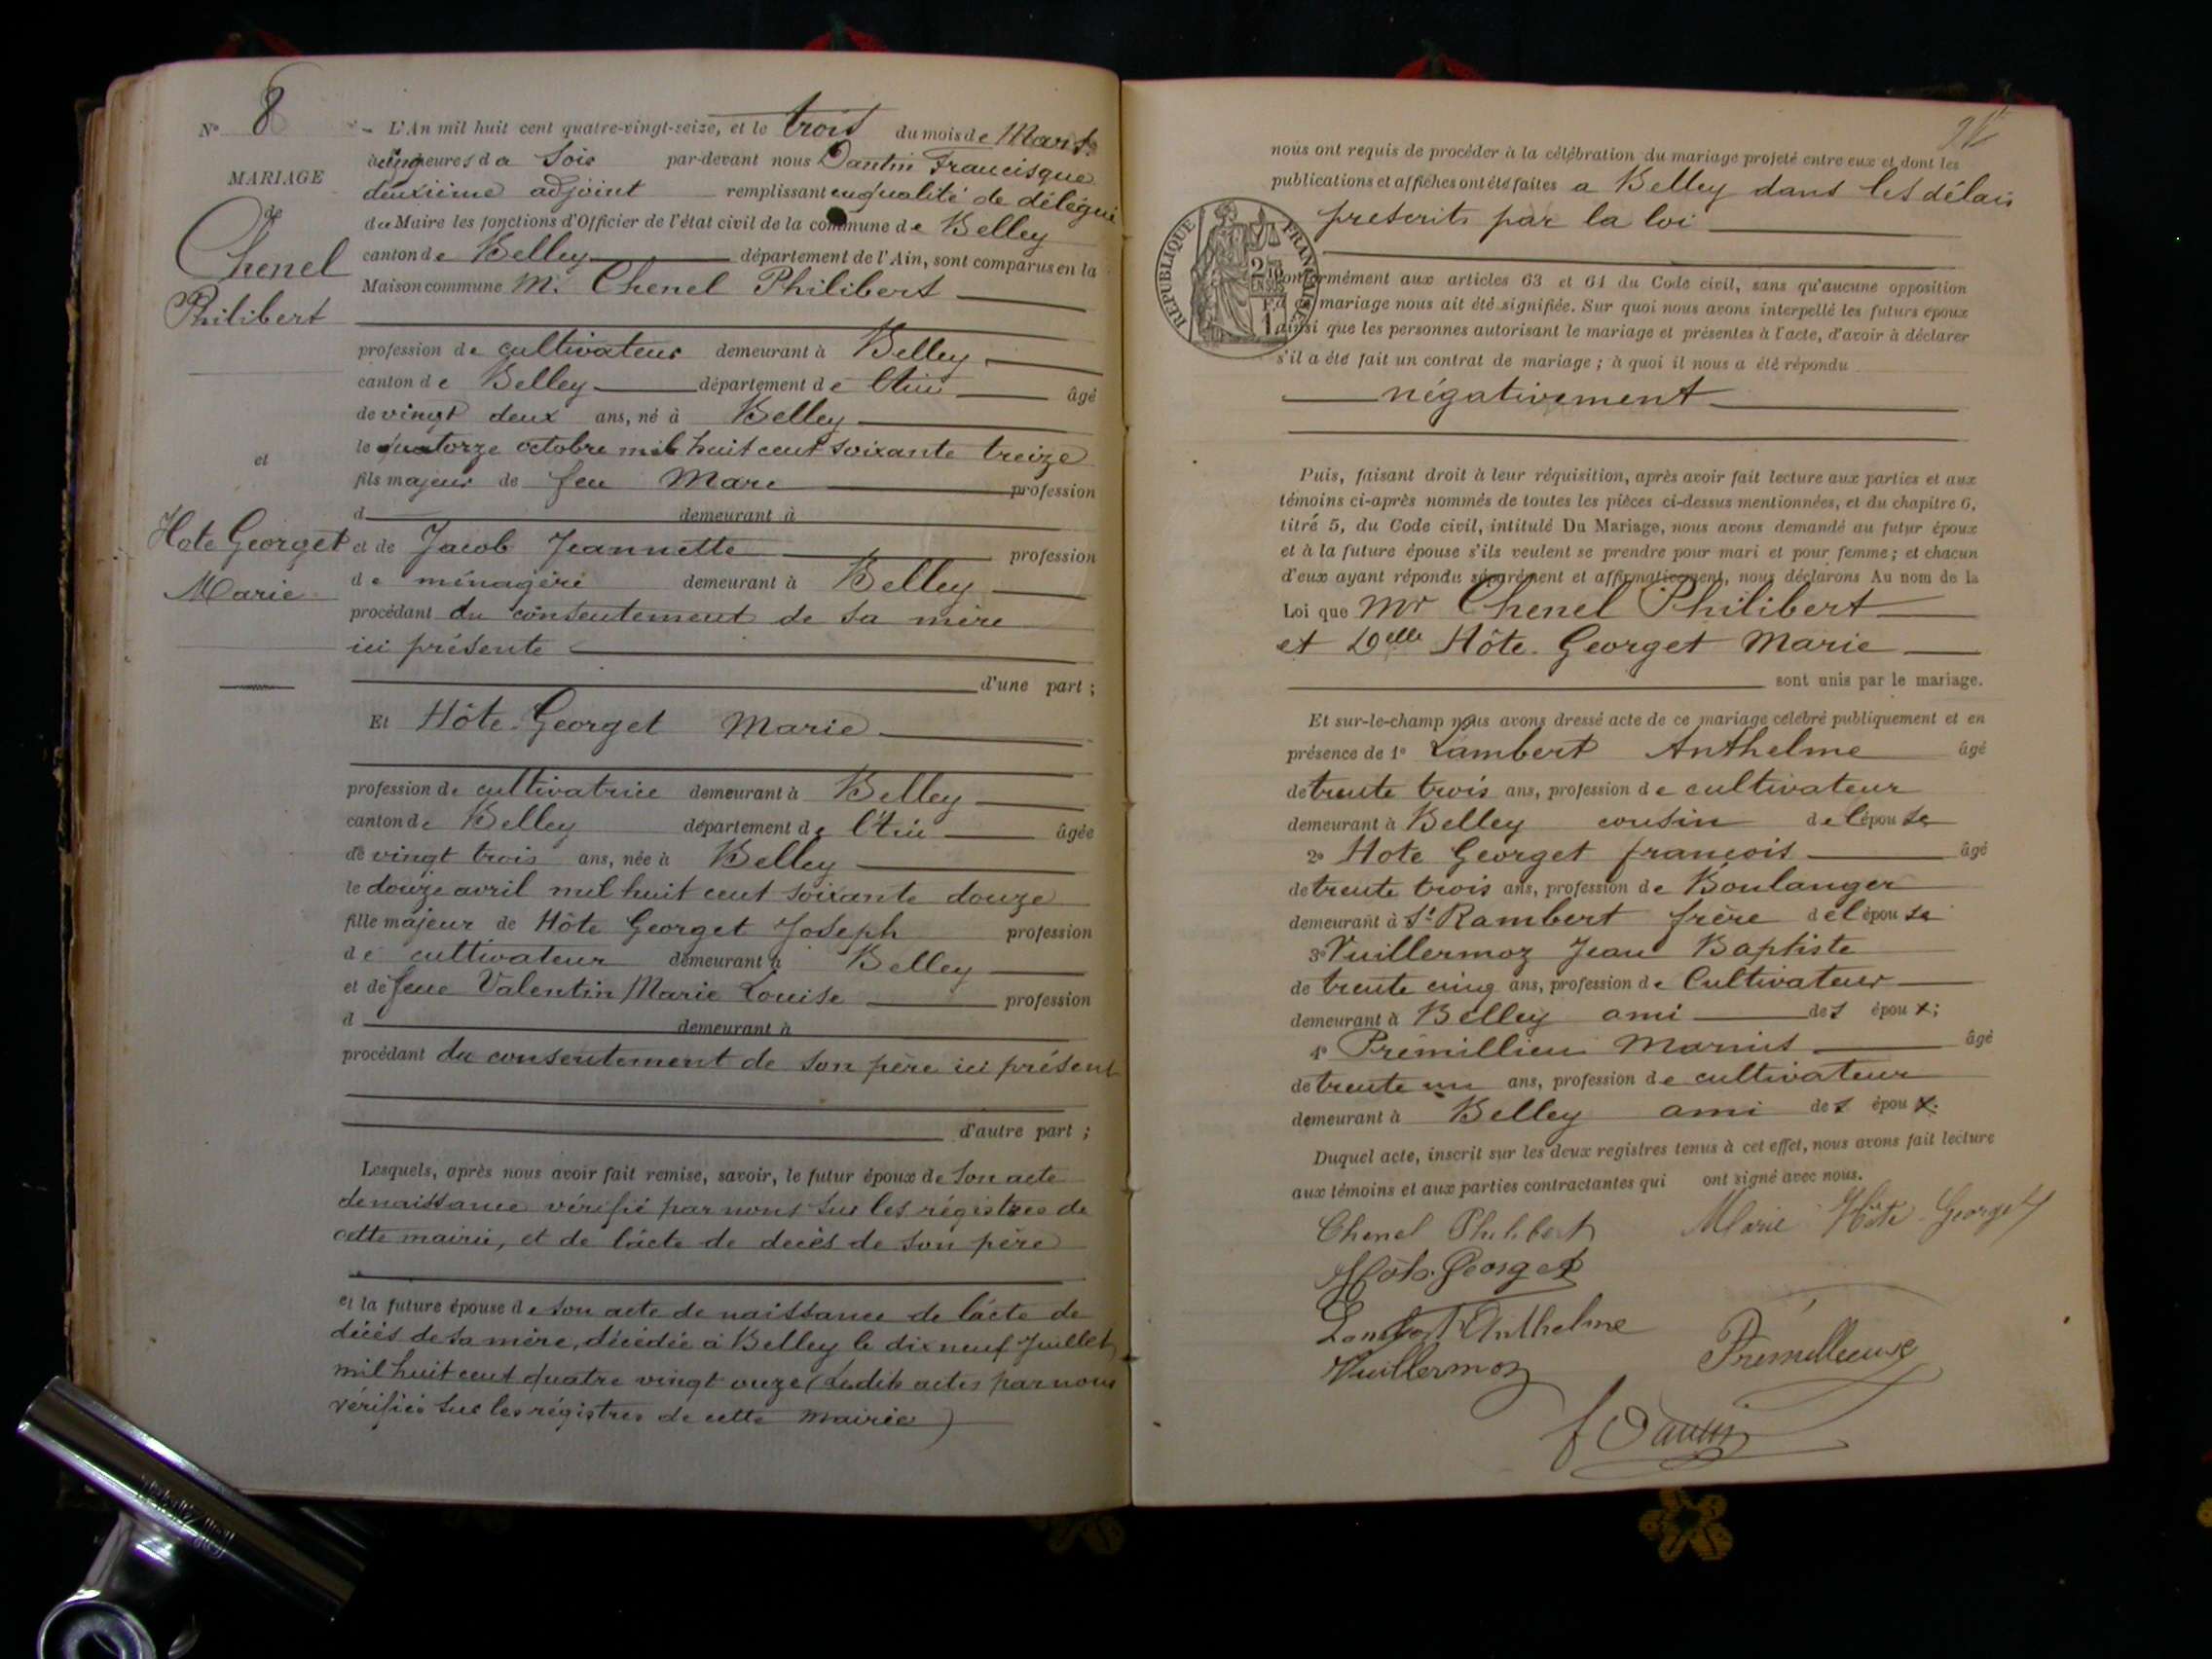 N° 8
MARIAGE
de
Chenel
Philibert
et
Hote Georget
Marie
L'An mil huit cent quatre-vingt-seize, et le trois du mois de Mars
à cinq heures da Soir par-devant nous Dantin Francisque
deuxième adjoint remplissant en qualité de délégué
du Maire les fonctions d'Officier de l'état civil de la commune de Belley
canton de Belley département de l'Ain, sont comparus en la
Maison commune M. Chenel Philibert
profession de cultivateur demeurant à Belley
canton de Belley département de l'Ain âgé
de vingt deux ans, né à Belley
le quatorze octobre mil huit cent soixante treize
fils majeur de feu Marc profession
d demeurant à
et de Jacob Jeannette profession
de ménagère demeurant à Belley
procédant du consentement de sa mère
ici présente
d'une part ;
Et Hôte-Georget Marie
profession de cultivatrice demeurant à Belley
canton de Belley département de l'Ain âgée
de vingt trois ans, née à Belley
le douze avril mil huit cent soixante douze
fille majeur de Hôte Georget Joseph profession
de cultivateur demeurant à Belley
et de feue Valentin Marie Louise profession
d demeurant à
procédant du consentement de son père ici présent
d'autre part ;
Lesquels, après nous avoir fait remise, savoir, le futur époux de son acte
de naissance vérifié par nous sur les régistres de
cette mairie, et de l'acte de decès de son père
et la future épouse de son acte de naissance de l'acte de
décès de sa mère, décédée à Belley le dix neuf Juillet
mil huit cent quatre vingt onze (Lesdits actes par nous
vérifiés sur les régistres de cette mairie)
nous ont requis de procéder à la célébration du mariage projeté entre eux et dont les
publications et affiches ont été faites a Belley dans les délais
prescrits par la loi
RÉPUBLIQUE FRANÇAISE
conformément aux articles 63 et 64 du Code civil, sans qu'aucune opposition
mariage nous ait été signifiée. Sur quoi nous avons interpellé les futurs époux
ainsi que les personnes autorisant le mariage et présentes à l'acte, d'avoir à déclarer
s'il a été fait un contrat de mariage ; à quoi il nous a été répondu
négativement
Puis, faisant droit à leur réquisition, après avoir fait lecture aux parties et aux
témoins ci-après nommés de toutes les pièces ci-dessus mentionnées, et du chapitre 6,
titre 5, du Code civil, intitulé Du Mariage, nous avons demandé au futur époux
et à la future épouse s'ils veulent se prendre pour mari et pour femme ; et chacun
d'eux ayant répondu séparément et affirmativement, nous déclarons Au nom de la
Loi que Mr Chenel Philibert
et Delle Hôte-Georget Marie
sont unis par le mariage.
Et sur-le-champ nous avons dressé acte de ce mariage célébré publiquement et en
présence de 1° Lambert Anthelme âgé
de trente trois ans, profession de cultivateur
demeurant à Belley cousin de l'épouse
2° Hote Georget françois âgé
de trente trois ans, profession de Boulanger
demeurant à St Rambert frère de l'épouse
3° Vuillermoz Jean Baptiste
de trente cinq ans, profession de Cultivateur
demeurant à Belley ami des époux ;
4° Prémillieu Marius âgé
de trente un ans, profession de cultivateur
demeurant à Belley ami des époux.
Duquel acte, inscrit sur les deux registres tenus à cet effet, nous avons fait lecture
aux témoins et aux parties contractantes qui ont signé avec nous.
Chenel Philibert Marie Hôte-Georget
Hôte-Georget
Lambert Anthelme
Vuillermoz
f Dantin